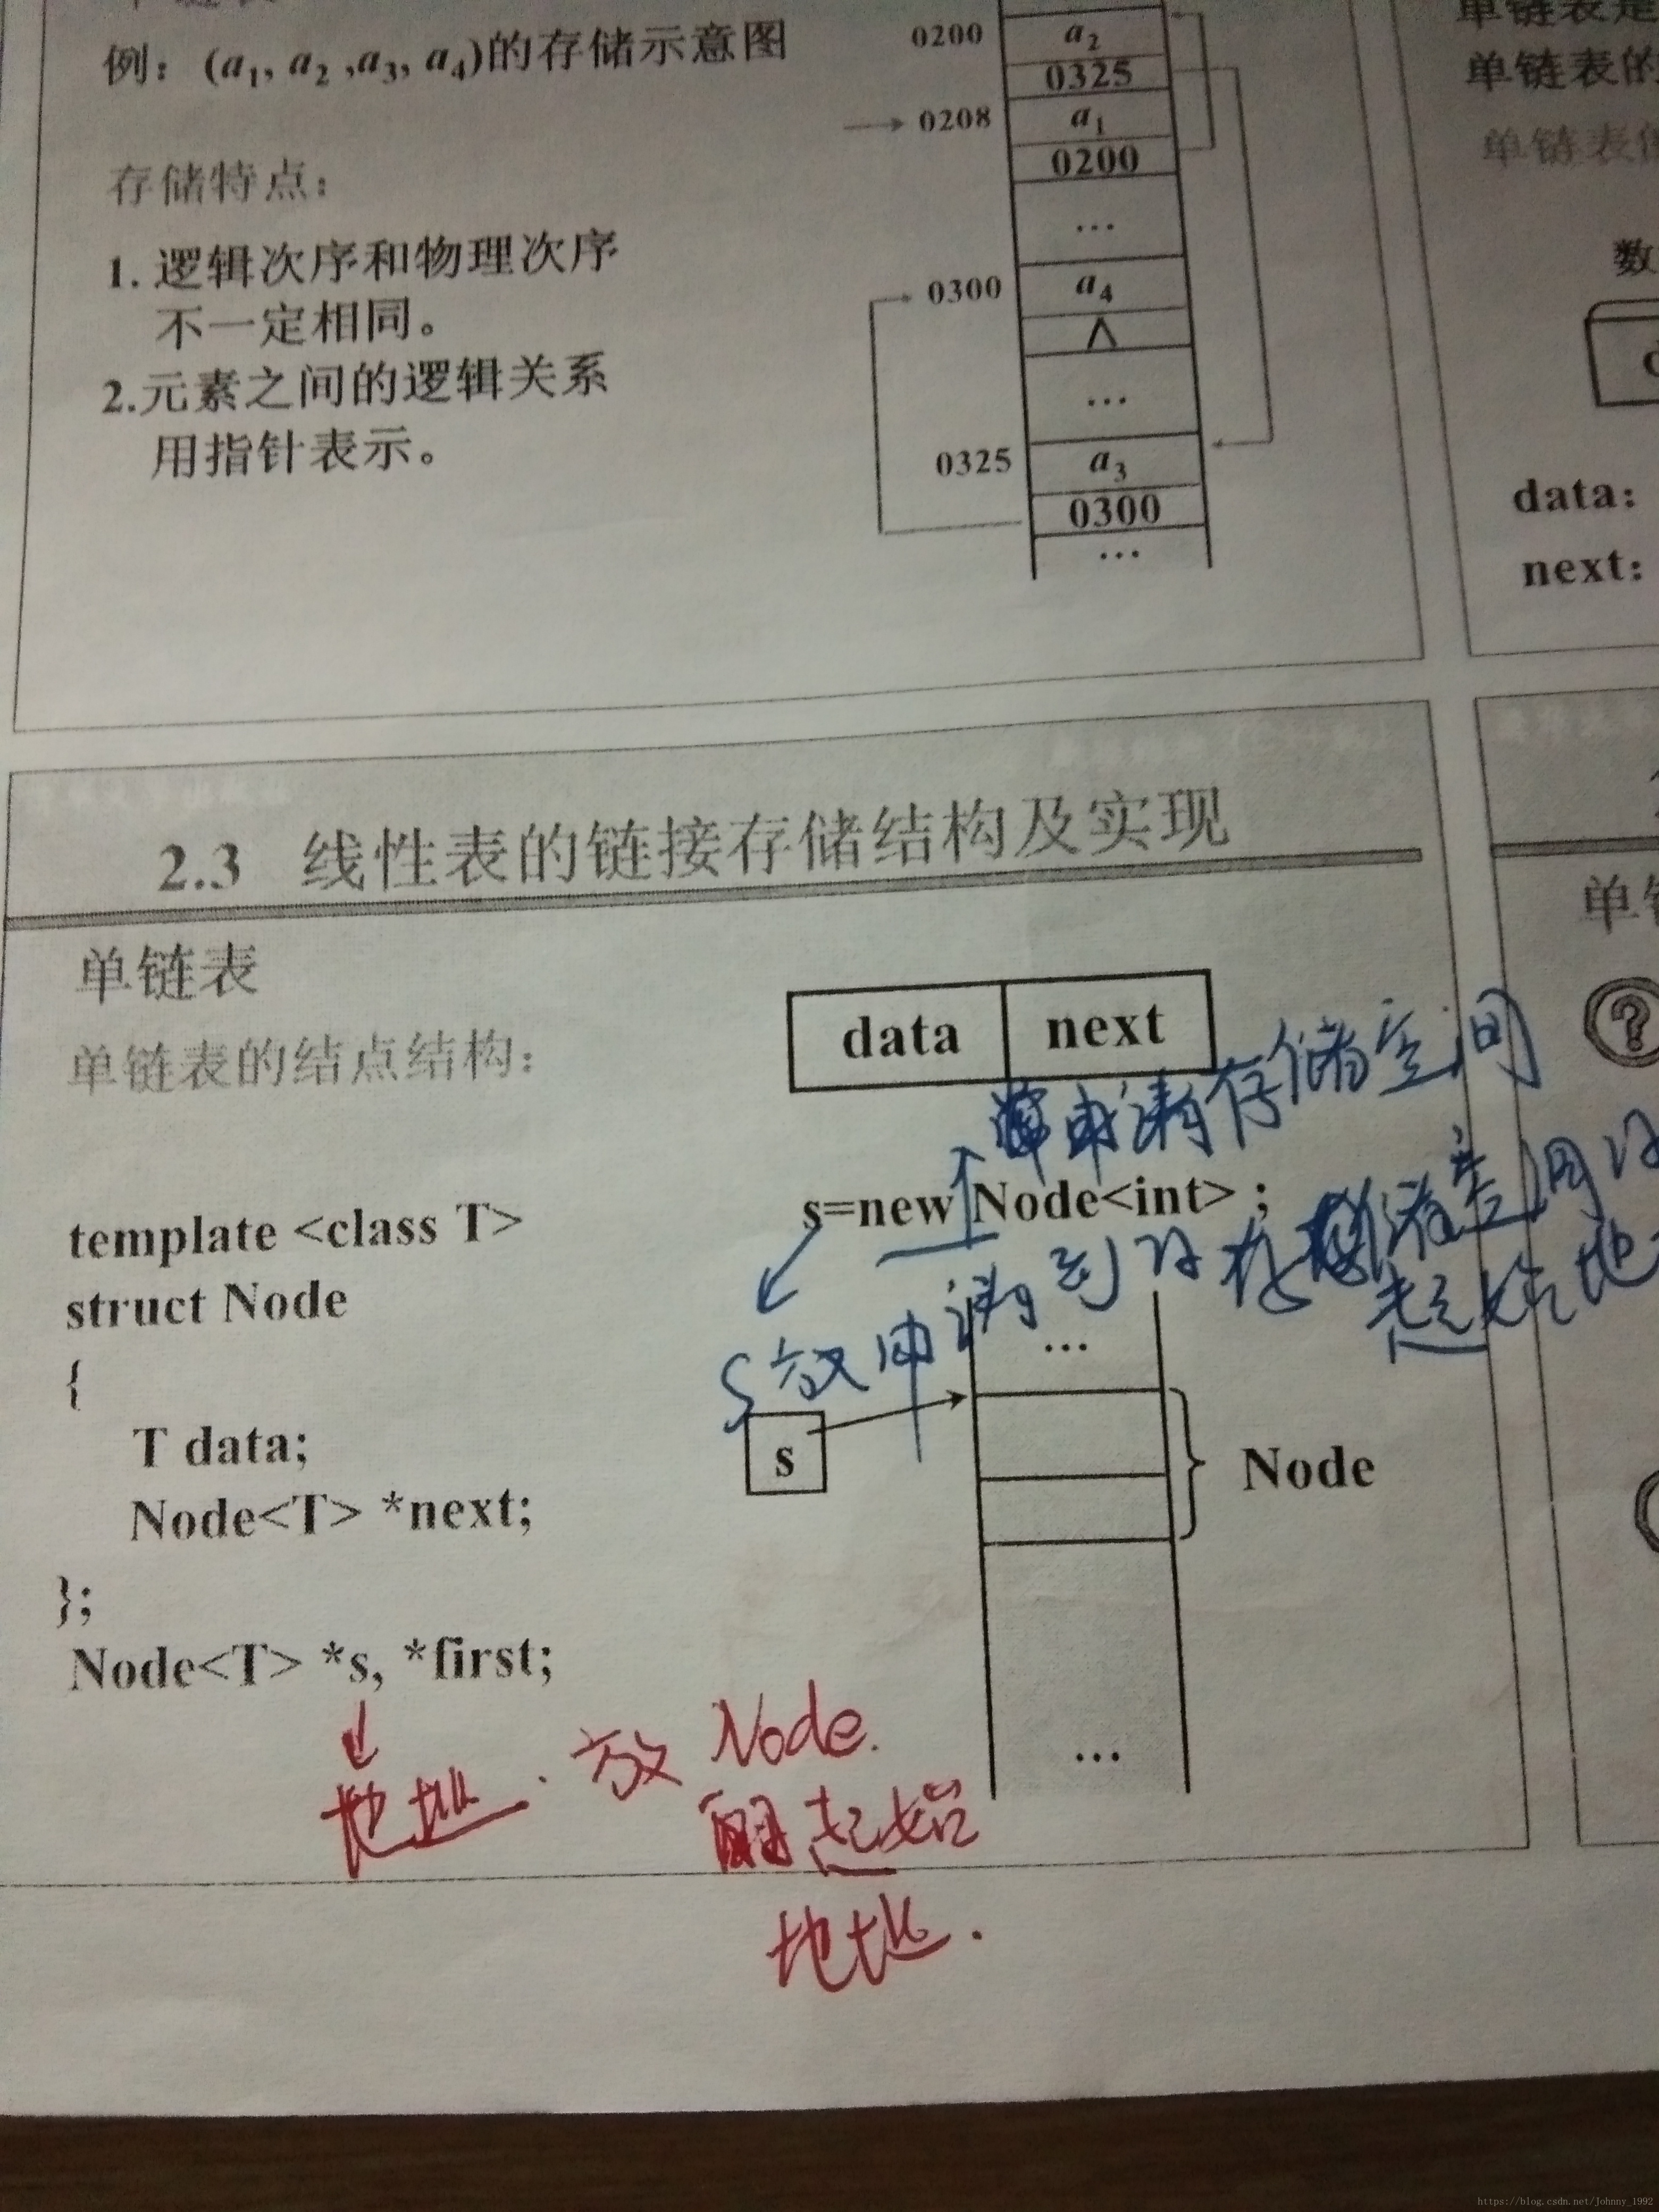 例：(a1, a2 ,a3, a4)的存储示意图
存储特点：
1. 逻辑次序和物理次序
不一定相同。
2.元素之间的逻辑关系
用指针表示。
0200
a2
0325
0208
a1
0200
…
0300
a4
∧
…
0325
a3
0300
…
单链表是
单链表的
单链表的
数
data：
next：
2.3 线性表的链接存储结构及实现
单链表
单链表的结点结构：
data next
申请存储空间
s=new Node<int> ;
S放申请到的存储空间的
起始地
template <class T>
struct Node
{
T data;
Node<T> *next;
};
Node<T> *s, *first;
…
s
Node
…
地址. 放 Node.
起始
地址.
?
https://blog.csdn.net/Johnny_1992